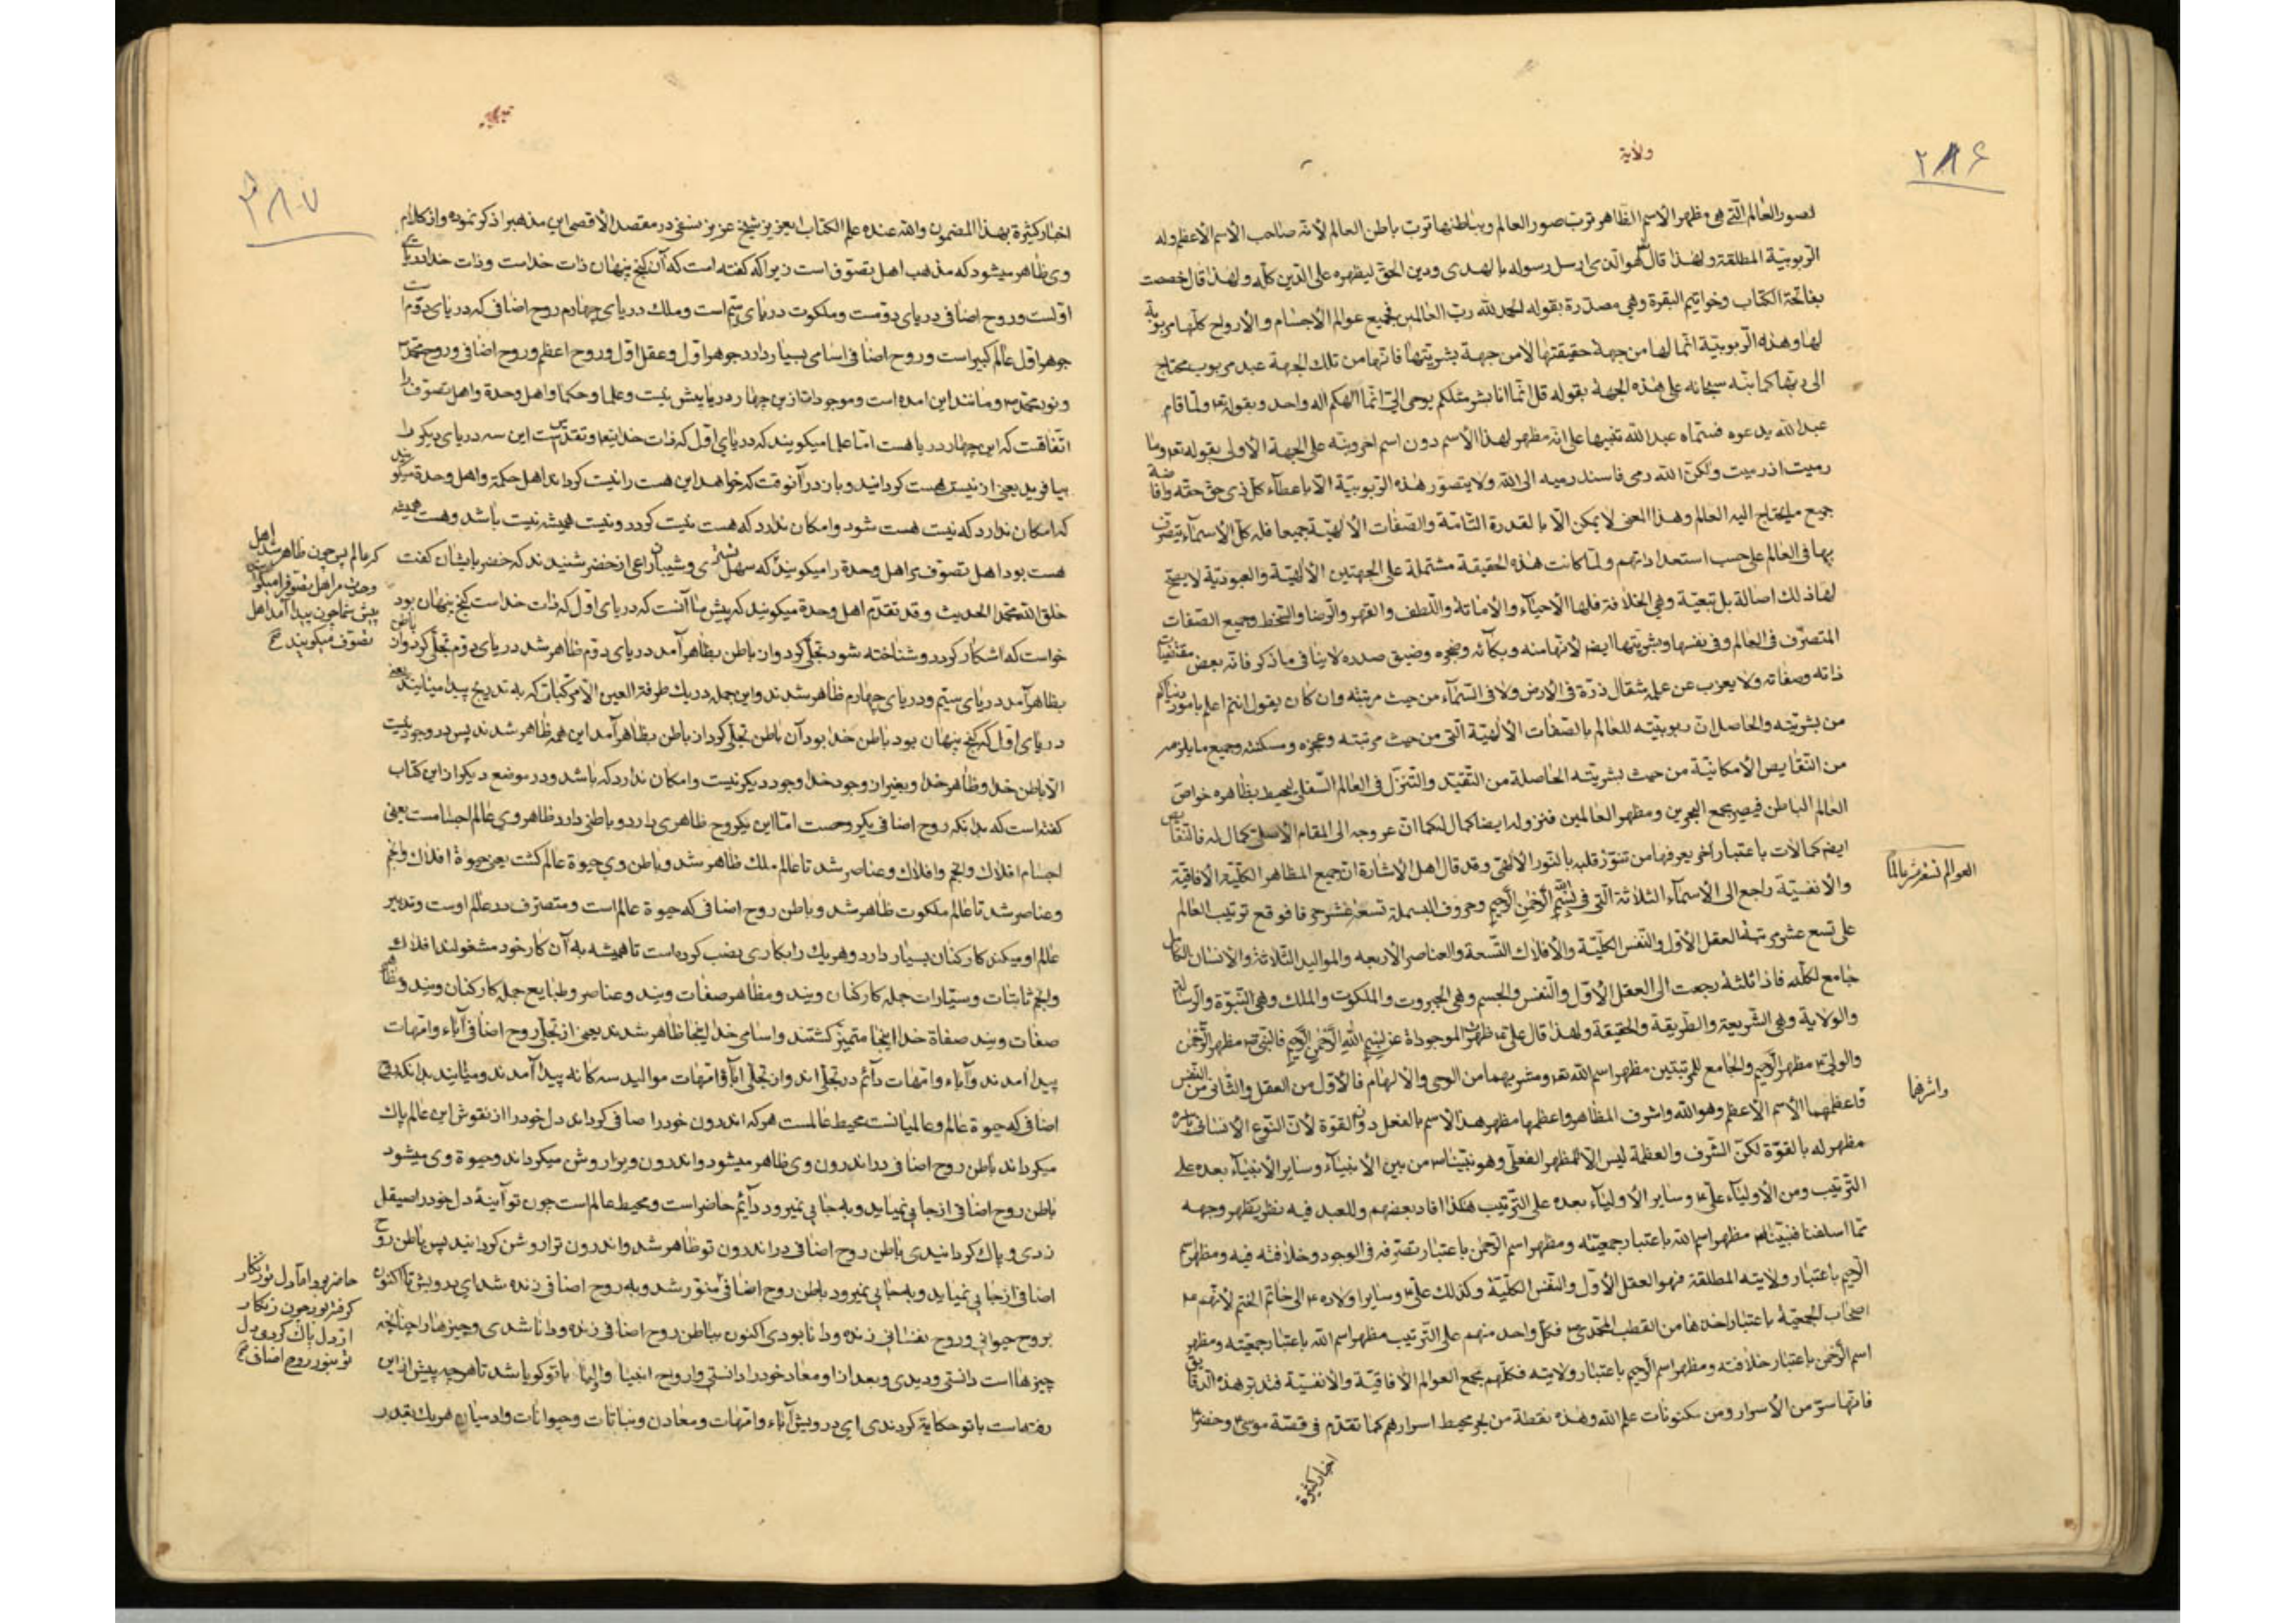 ولایة
۲۸۶
لصور العالم الّتى هى مظهر الاسم الظاهر تربّ صور العالم وبباطنها تربّ باطن العالم لأنّه صاحب الأسم الأعظم وله
الرّبوبيّة المطلقة ولهذا قال هو الّذى ارسل رسوله بالهدى ودين الحقّ ليظهره على الدّين كلّه ولهذا قال خصصت
بفاتحة الكتاب وخواتيم البقرة وهى مصدّرة بقوله الحمد لله ربّ العالمين فجميع عوالم الأجسام والأرواح كلّها مربوبة
لها وهذه الرّبوبيّة انّما لها من جهة حقيقتها لا من جهة بشريّتها فانّها من تلك الجهة عبد مربوب محتاج
الى ربّها كما نبّه سبحانه على هذه الجهة بقوله قل انّما انا بشر مثلكم يوحى الىّ انّما الهكم اله واحد وبقوله تع ولمّا قام
عبد الله يدعوه فسمّاه عبد الله تنبيها على انّه مظهر لهذا الأسم دون اسم اخر ونبّه على الجهة الأولى بقوله تع وما
رميت اذ رميت ولكنّ الله رمى فاسند رميه الى الله ولا يتصوّر هذه الرّبوبيّة الّا باعطاء كلّ ذى حقّ حقّه وافاضة
جميع ما يحتاج اليه العالم وهذا المعنى لا يمكن الّا بالقدرة التّامّة والصّفات الألهيّة جميعا فله كلّ الأسماء يتصرّف
بها فى العالم على حسب استعداداتهم ولمّا كانت هذه الحقيقة مشتملة على الجهتين الألهيّة والعبوديّة لا يصحّ
لها ذلك اصالة بل تبعيّة وهى الخلافة فلها الأحياء والأماتة واللّطف والقهر والرّضا والسّخط وجميع الصّفات
المتصرّف فى العالم وفى نفسها وبشريّتها ايضا لأنّها منه وبكائه وضجره وضيق صدره لا ينافى ما ذكر فانّه بعض مقتضيات
ذاته وصفاته ولا يعزب عن علمه مثقال ذرّة فى الأرض ولا فى السّماء من حيث مرتبته وان كان يقول انتم اعلم بامور دنياكم
من بشريّته والحاصل انّ ربوبيّته للعالم بالصّفات الألهيّة الّتى من حيث مرتبته وعجزه ومسكنته وجميع ما يلزمه
من النّقايص الأمكانيّة من حيث بشريّته الحاصلة من التّقيّد والتّنزّل فى العالم السّفلى ليحيط بظاهره خواصّ
العالم الباطن فيصير مجمع البحرين ومظهر العالمين فنزوله ايضا كمال له كما انّ عروجه الى المقام الأصلى كمال له فالنّقايص
ايضا كمالات باعتبار اخر يعرفها من تنوّر قلبه بالنّور الألهى وقد قال اهل الأشارة انّ جميع المظاهر الكلّيّة الأفاقيّة
والأنفسيّة راجع الى الأسماء الثلاثة الّتى فى بسم الله الرّحمن الرّحيم وحروف البسملة تسعة عشر حرفا فوقع ترتيب العالم
على تسع عشر مرتبة العقل الأوّل والنّفس الكلّيّة والأفلاك التّسعة والعناصر الأربعه والمواليد الثّلاثة والأنسان الكامل
جامع لكلّه فاذا ثلثه رجعت الى العقل الأوّل والنّفس والجسم وهى الجبروت والملكوت والملك وهى النّبوّة والرّسالة
والولاية وهى الشّريعة والطّريقة والحقيقة ولهذا قال على ع ظهرت الموجودة عن بسم الله الرّحمن الرّحيم فالنّبى ص مظهر الرّحمن
والولى ع مظهر الرّحيم والجامع للمرتبتين مظهر اسم الله تع ومشربهما من الوحى والألهام فالأوّل من العقل والثّانى من النّفس
فاعظمهما الأسم الأعظم وهو الله واشرف المظاهر واعظمها مظهر هذا الأسم بالفعل دون القوّة لأنّ النّوع الأنسانى باسره
مظهر له بالقوّة لكنّ الشّرف والعظمة ليس الّا للمظهر الفعلى وهو نبيّنا ص من بين الأنبياء وساير الأنبياء بعده على
التّرتيب ومن الأولياء على ع وساير الأولياء بعده على التّرتيب هكذا افاد بعضهم وللعبد فيه نظر يظهر وجهه
ممّا اسلفنا فنبيّنا ص مظهر اسم الله باعتبار جمعيّته ومظهر اسم الرّحمن باعتبار تصرّفه فى الوجود وخلافته فيه ومظهر اسم
الرّحيم باعتبار ولايته المطلقة فهو العقل الأوّل والنّفس الكلّيّة وكذلك على ع وساير اولاده ع الى خاتم الختم لأنّهم ع
اصحاب الجمعيّة باعتبار اخذها من القطب المحمّدى ص فكلّ واحد منهم على التّرتيب مظهر اسم الله باعتبار جمعيّته ومظهر
اسم الرّحمن باعتبار خلافته ومظهر اسم الرّحيم باعتبار ولايته فكلّهم مجمع العوالم الأفاقيّة والأنفسيّة فتدبّر هذه الدّقايق
فانّها سرّ من الأسرار ومن مكنونات علم الله وهذه نقطة من بحر محيط اسرارهم كما تقدّم فى قصّة موسى ع وخضر ع
اخبار كثيرة
واشرفها
۳۸۷
اخبار كثيرة بهذا المضمون والله عنده علم الكتاب ايعزيز شيخ عزيز نسفى در مقصد الأقصى اين مذهبرا ذكر نموده واز كلام
وى ظاهر ميشود كه مذهب اهل تصوّف است زيرا كه گفته است كه آن گنج پنهان ذات خداست وذات خدا درياى
اوّلست وروح اضافى درياى دوّمست وملكوت درياى سيّم است وملك درياى چهارم روح اضافى كه درياى دوّم است
جوهر اوّل عالم كبير است وروح اضافى اسامى بسيار دارد جوهر اوّل وعقل اوّل وروح اعظم وروح اضافى وروح محمّد ص
ونور محمّد ص ومانند اين امده است وموجودات ازين چهار دريا بيش نيست وعلما وحكما واهل وحدة واهل تصوّف را
اتّفاقست كه اين چهار دريا هست امّا علما ميكويند كه درياى اوّل كه ذات خدا تعا وتقدّس است اين سه درياى ديكر را
بيافريد يعنى از نيست هست كردانيد وباز در آنوقت كه خواهد اين هست را نيست كرداند اهل حكمة واهل وحدة ميكويند
كه امكان ندارد كه نيست هست شود وامكان ندارد كه هست نيست كردد ونيست هميشه نيست باشد وهست هميشه
هست بود اهل تصوّف مر اهل وحدة را ميكويند كه سهل تسترى وشيبان راعى از خضر شنيدند كه خضر بايشان كفت
خلق الله محمّدا الحديث وقد تقدّم اهل وحدة ميكويند كه پيش ما آنست كه درياى اوّل كه ذات خداست گنج پنهان بود
خواست كه اشكار كردد وشناخته شود تجلّى كرد وان باطن بظاهر آمد درياى دوّم ظاهر شد درياى دوّم تجلّى كرد وان باطن
بظاهر آمد درياى سيّم ودرياى چهارم ظاهر شدند واين جمله در يك طرفة العين الّا مركّبات كه به تدريج پيدا ميايند يعنى
درياى اوّل كه گنج پنهان بود باطن خدا بود آن باطن تجلّى كرد از باطن بظاهر آمد اين همه ظاهر شدند پس در وجود نيست
الّا باطن خدا وظاهر خدا وبغير از وجود خدا وجود ديكر نيست وامكان ندارد كه باشد ودر موضع ديكر از اين كتاب
كفته است كه بدانكه روح اضافى يكروحست امّا اين يكروح ظاهرى دارد وباطنى دارد ظاهر وى عالم اجسامست يعنى
اجسام افلاك وانجم وافلاك وعناصر شد تا عالم ملك ظاهر شد وباطن وى حيوة عالم كشت يعنى حيوة افلاك وانجم
وعناصر شد تا عالم ملكوت ظاهر شد وباطن روح اضافى كه حيوة عالم است ومتصرّف در عالم اوست وتدبير
عالم او ميكند كاركنان بسيار دارد وهر يك را بكارى نصب كرده است تا هميشه به آن كار خود مشغولند افلاك
وانجم ثابتات وسيّارات جمله كاركنان ويند ومظاهر صفات ويند وعناصر وطبايع جمله كاركنان ويند ومظاهر
صفات ويند صفاة خدا اينجا متميّز كشتند واسامى خدا اينجا ظاهر شدند يعنى از تجلّى روح اضافى آباء وامّهات
پيدا آمدند وآباء وامّهات دآئم در تجلّى اند واز تجلّى آباء وامّهات مواليد سه كانه پيدا آمدند وميايند بدانكه روح
اضافى كه حيوة عالم وعالميانست محيط عالمست هركه اندرون خود را صافى كرداند دل خود را از نقوش اين عالم پاك
ميكرداند باطن روح اضافى در اندرون وى ظاهر ميشود واندرون ويرا روشن ميكرداند وحيوة وى ميشود
باطن روح اضافى از جايى نميايد وبه جايى نميرود دآئم حاضر است ومحيط عالم است چون تو آينهٔ دل خود را صيقل
زدى وپاك كردانيدى باطن روح اضافى در اندرون تو ظاهر شد واندرون ترا روشن كردانيد پس باطن روح
اضافى از جايى نميايد وبه جايى نميرود باطن روح اضافى منوّر شد وبه روح اضافى زنده شد اى درويش تا اكنون
بروح حيوانى وروح نفسانى زنده ودانا بودى اكنون بباطن روح اضافى زنده ودانا شدى وچيزها را چنانچه
چيزها است دانستى وديدى وبعد از او معاد خود را دانستى وارواح انبيا واوليا با تو كويا شد تا هرچه پيش از اين
رفته است با تو حكاية كردندى اى درويش آباء وامّهات ومعادن ونباتات وحيوانات وادميان هر يك بقدر
كر عالم پس چون ظاهر شد اهل
پيش شما چون پيدا آمد اهل
تصوّف ميكويند
حاضر بود امّا دل تو زنكار
كرفته بود چون زنكار
از دل پاك كردى دل
تو بنور روح اضافى